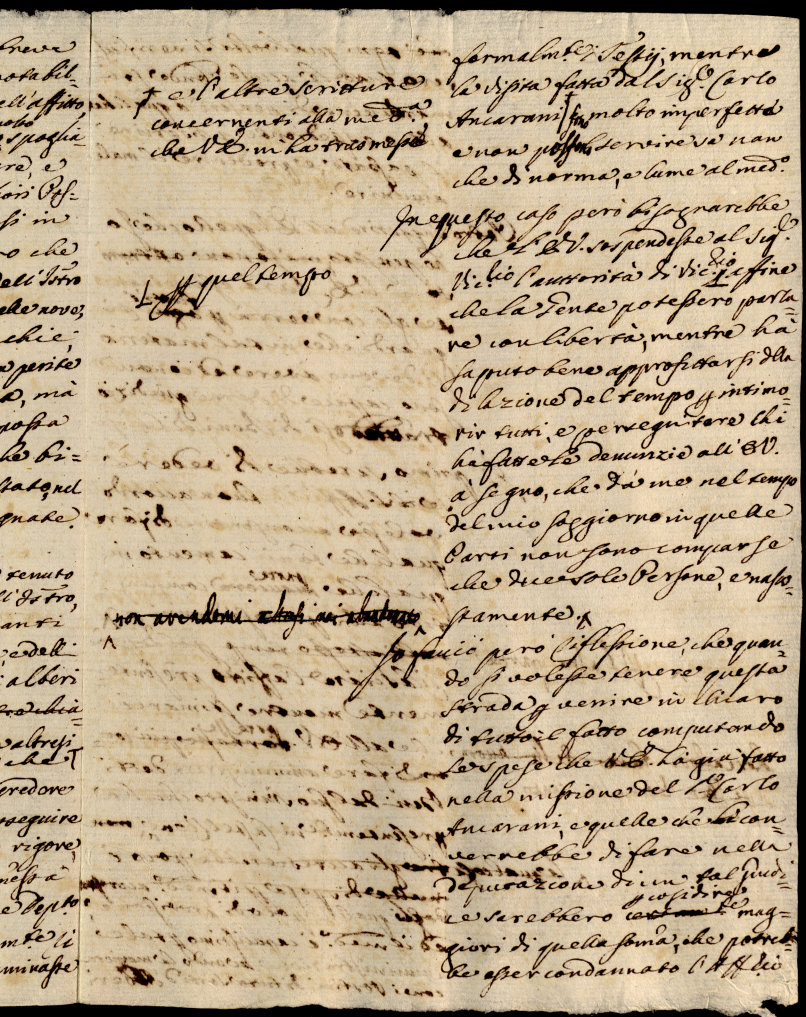 breve
notabil-
ell'affitto
spoglia-
are, e
si in
ro che
dell'Istro
elle nove,
chie;
perite
a, mà
possa
he bi=
tato, nel
gnate.
tenuto
ll'Istro,
anti
, e delli
alberi
altresi
che
reditore
seguire
rigore,
messa
e Depto
mte li
minasse
† e l'altre scritture
concernenti alla medª
che VE. m'ha trasmesse
quel tempo
non avendomi
formalmte i Testij, mentre
la visita fatta dal Sigr. Carlo
Ancarani molto imperfetta
e non servire se non
che di norma, e lume al medo.
In questo caso però bisognarebbe
che VE. sospendesse al Sigr.
l'auttorità di affine
che la Gente potessero parla=
re con libertà, mentre hà
saputo bene approfittarsi della
dilazione del tempo intimo=
rir tutti, e perseguitare chi
hà fatte le denunzie all'EV.
à segno, che dà me nel tempo
del mio soggiorno in quelle
Parti non sono comparse
che diece sole Persone, e nasco=
stamente.
Io faccio però riflessione, che quan=
do si volesse tenere questa
strada p venire in chiaro
di tutto il fatto computando
le spese che VE. hà già fatto
nella missione del Sr Carlo
Ancarani, e quelle che li con=
verrebbe di fare nella
deputazione di un tal Giudi=
ce sarebbero p così dire mag=
giori di quella soma, che potreb=
be esser condannato l'Affilio